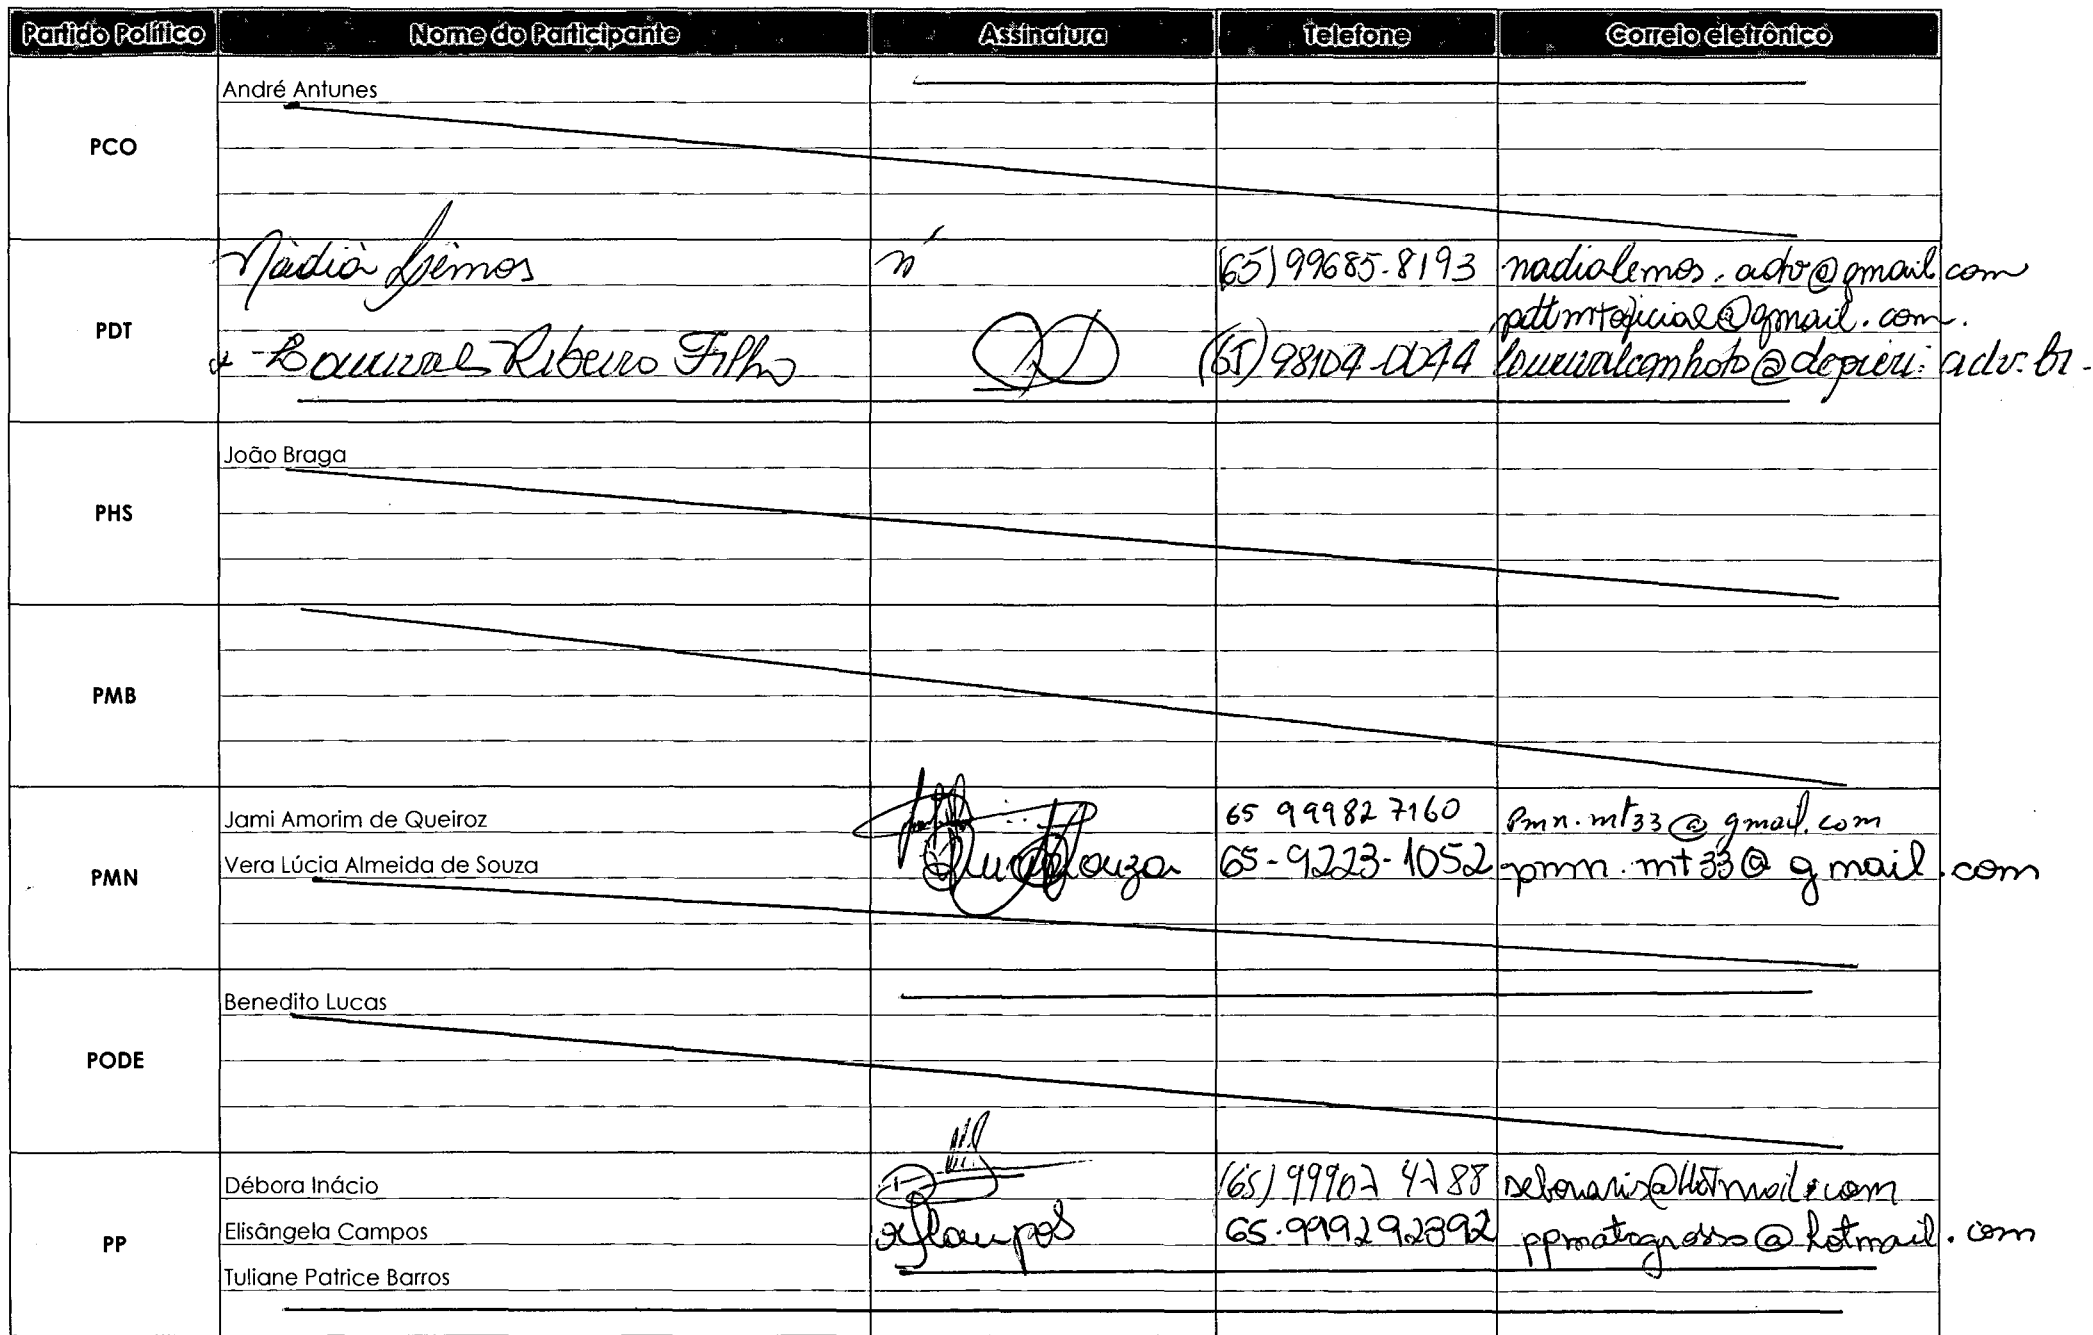 Partido Político Nome do Participante Assinatura Telefone Correio eletrônico
André Antunes
PCO
Nádia Lemos (65) 99685-8193 nadialemos.adv@gmail.com
pdtmtoficial@gmail.com.
PDT
Lourival Ribeiro Filho (65) 98104-0044 @depieri.adv.br
João Braga
PHS
PMB
Jami Amorim de Queiroz 65 99982 7160 pmn.mt33@gmail.com
Vera Lúcia Almeida de Souza Souza 65-9223-1052 pmn.mt33@gmail.com
PMN
Benedito Lucas
PODE
Débora Inácio @Hotmail.com
Elisângela Campos Campos 65.999292392 ppmatogrosso@hotmail.com
PP
Tuliane Patrice Barros